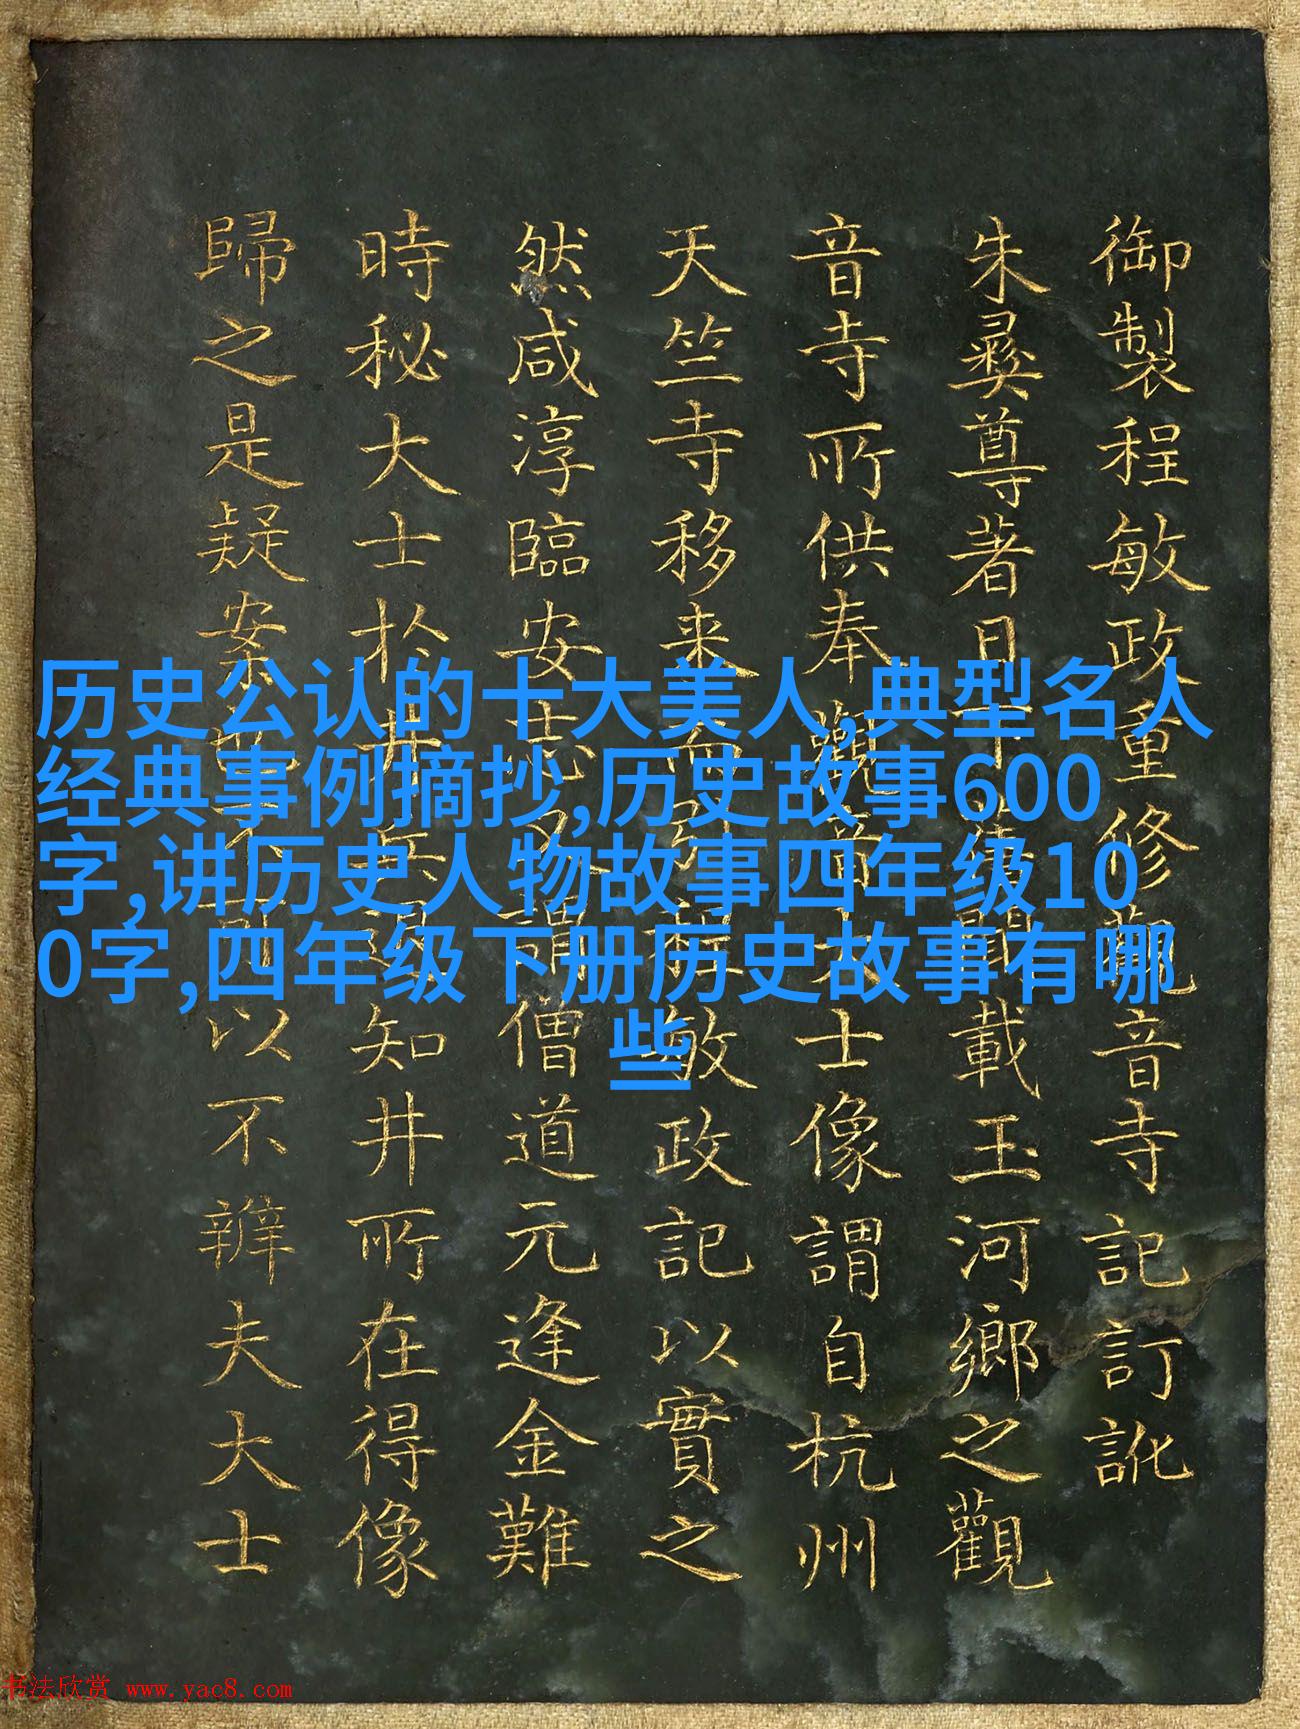 御製程敏政重修觀音寺記訂訛
朱彝尊著日下舊聞載玉河鄉之觀
音寺所供奉觀音大士像謂自杭州
天竺寺移来而引程敏政記以實之
然咸淳臨安志又謂僧道元逢金難
時秘大士於井兵知井所在得像
歸之是疑案不可以不辨夫大士
历史公认的十大美人,典型名人
经典事例摘抄,历史故事600
字,讲历史人物故事四年级10
0字,四年级下册历史故事有哪
些
书法欣赏 www.yac8.com